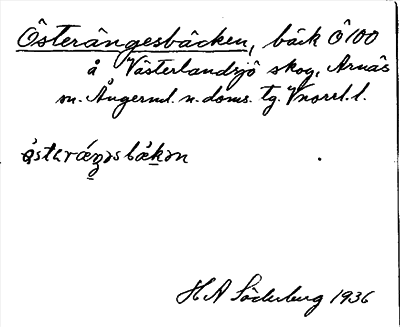 Österängesbäcken, bäck Ö 100
å Västerlandsjö skog, Arnäs
sn. Ångerml. n. doms. tg. Vnorrl. l.
H A Söderberg 1936